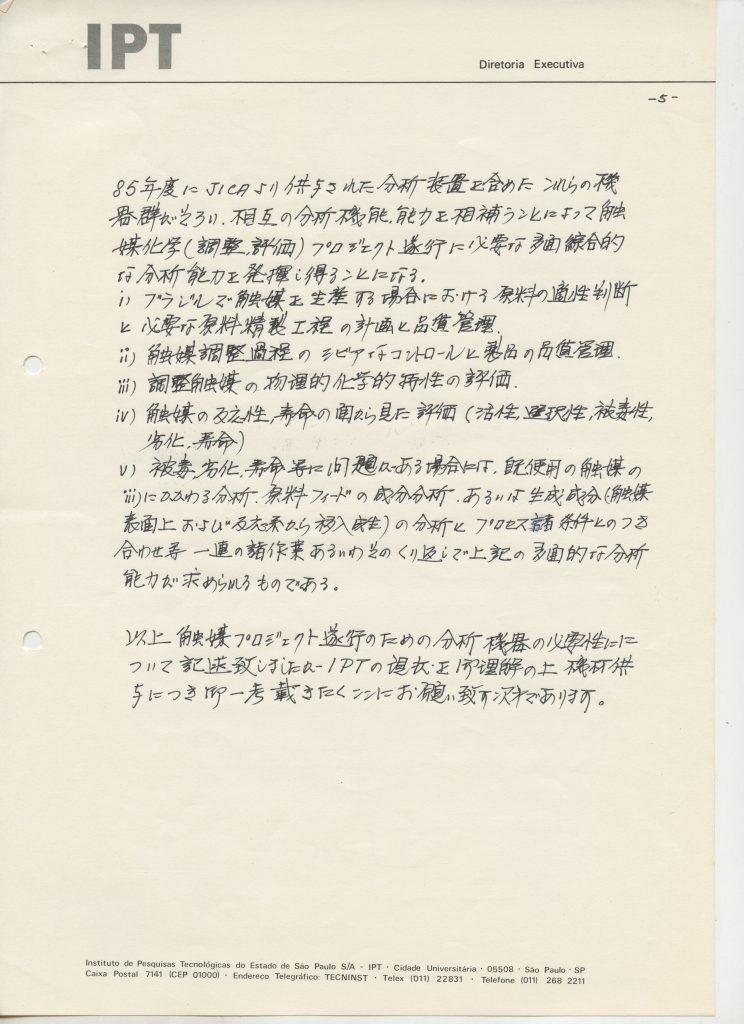 IPT
Diretoria Executiva
-5-
85年度にJICAより供与された分析装置を含めたこれらの機
器群がそろい、相互の分析機能、能力を相補うことによって触
媒化学(調整、評価)プロジェクト遂行に必要な多面綜合的
な分析能力を発揮し得ることになる。
i) ブラジルで触媒を生産する場合における原料の適性判断
と必要な原料精製工程の計画と品質管理.
ii) 触媒調整過程のシビアなコントロールと製品の品質管理.
iii) 調整触媒の物理的化学的特性の評価.
iv) 触媒の反応性,寿命の面から見た評価(活性,選択性,被毒性,
劣化,寿命)
v) 被毒,劣化,寿命等に問題がある場合には,既使用の触媒の
iii)にかかわる分析.原料フィードの成分分析.あるいは生成成分(触媒
表面上および反応系から)の分析とプロセス諸条件とのつき
合わせ等一連の諸作業あるいわそのくり返しで上記の多面的な分析
能力が求められるものである。
以上触媒プロジェクト遂行のための分析機器の必要性にに
ついて記述致しましたが IPTの を御理解の上機材供
与につき御一考戴きたくここにお願い致す であります。
Instituto de Pesquisas Tecnológicas do Estado de São Paulo S/A · IPT · Cidade Universitária · 05508 · São Paulo · SP
Caixa Postal 7141 (CEP 01000) · Endereço Telegráfico: TECNINST · Telex (011) 22831 · Telefone (011) 268 2211